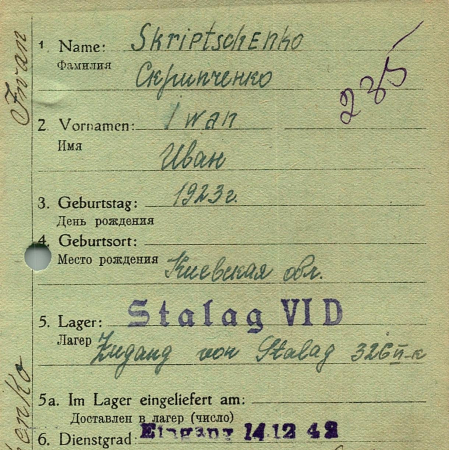 1. Name: Skriptschenko
Фамилия Скрипченко
235
2. Vornamen: Iwan
Имя Иван
3. Geburtstag: 1923г.
День рождения
4. Geburtsort:
Место рождения Киевская обл.
5. Lager: Stalag VI D
Лагер Zugang von Stalag 326
5a. Im Lager eingeliefert am:
Доставлен в лагер (число)
6. Dienstgrad: Eingang 14.12 42
Iwan
enko